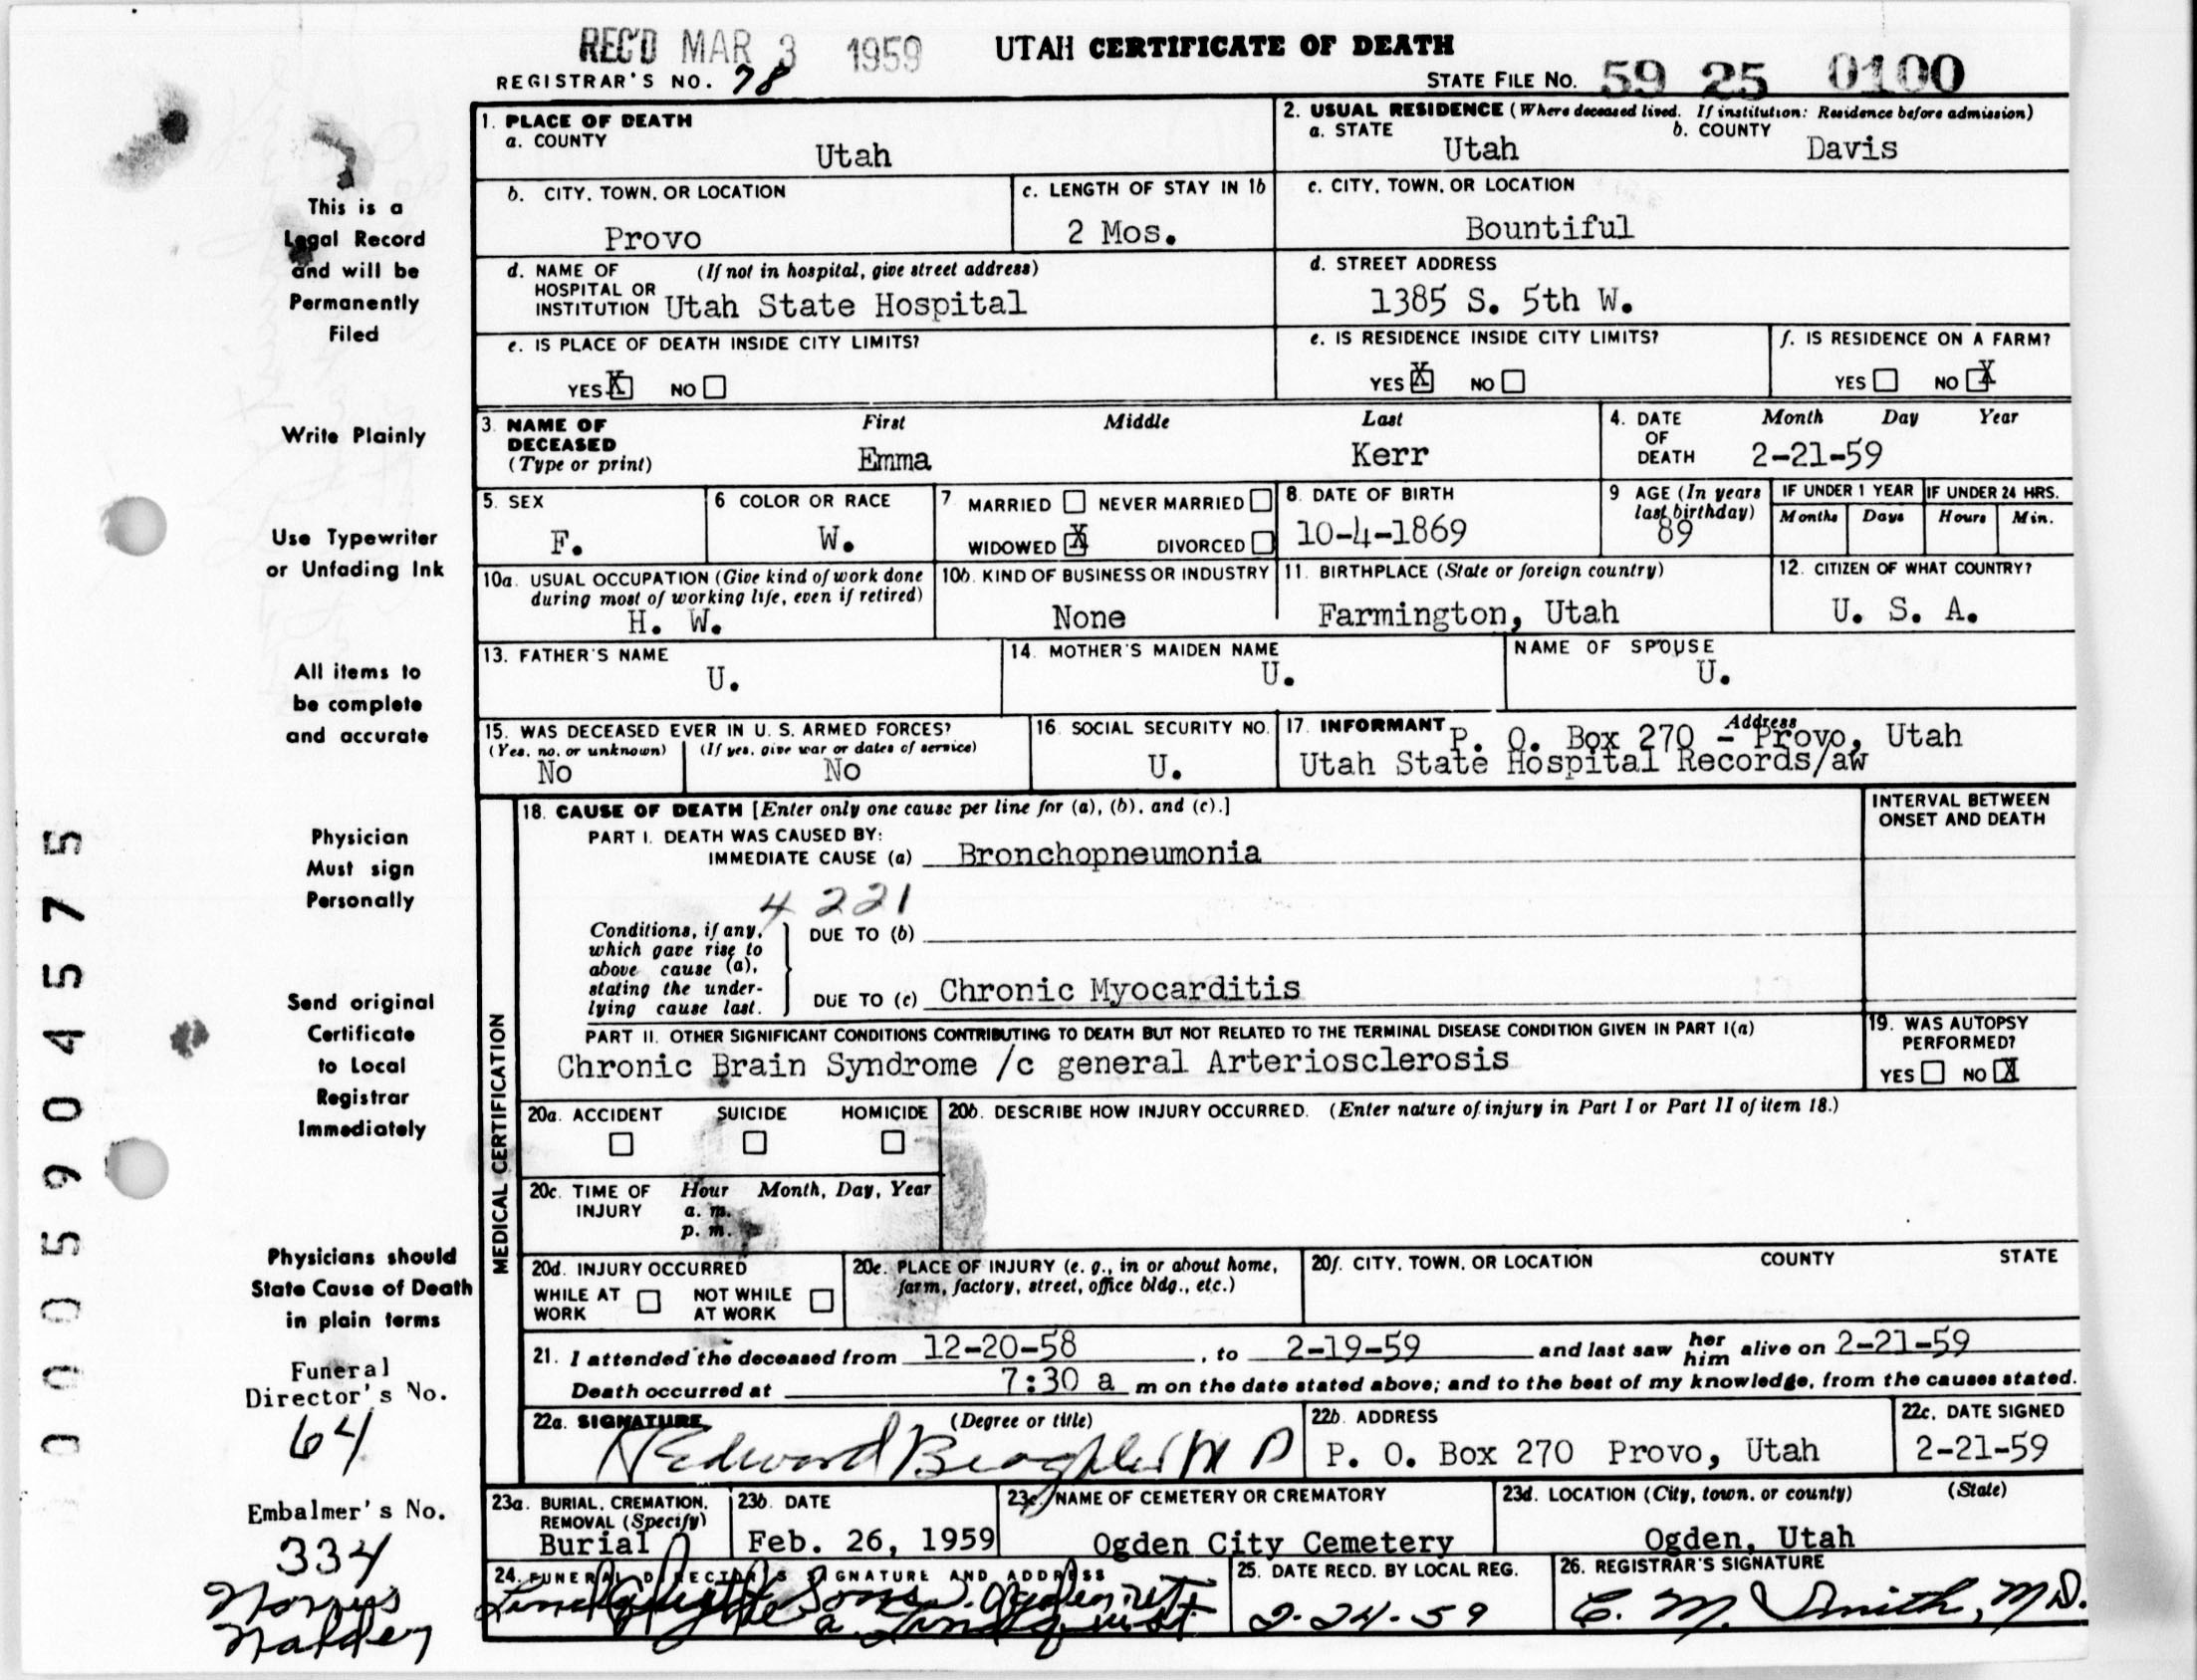 REC'D MAR 3 1959
UTAH CERTIFICATE OF DEATH
REGISTRAR'S NO. 78
STATE FILE NO. 59 25 0100
This is a
Legal Record
and will be
Permanently
Filed
Write Plainly
Use Typewriter
or Unfading Ink
All items to
be complete
and accurate
Physician
Must sign
Personally
Send original
Certificate
to Local
Registrar
Immediately
Physicians should
State Cause of Death
in plain terms
Funeral
Director's No.
64
Embalmer's No.
334
Norris
Nalder
0005904575
1. PLACE OF DEATH
a. COUNTY
Utah
2. USUAL RESIDENCE (Where deceased lived. If institution: Residence before admission)
a. STATE b. COUNTY
Utah Davis
b. CITY, TOWN, OR LOCATION
Provo
c. LENGTH OF STAY IN 1b
2 Mos.
c. CITY, TOWN, OR LOCATION
Bountiful
d. NAME OF (If not in hospital, give street address)
HOSPITAL OR
INSTITUTION Utah State Hospital
d. STREET ADDRESS
1385 S. 5th W.
e. IS PLACE OF DEATH INSIDE CITY LIMITS?
YES X NO
e. IS RESIDENCE INSIDE CITY LIMITS?
YES X NO
f. IS RESIDENCE ON A FARM?
YES NO X
3. NAME OF First Middle Last
DECEASED
(Type or print) Emma Kerr
4. DATE Month Day Year
OF
DEATH 2-21-59
5. SEX
F.
6 COLOR OR RACE
W.
7. MARRIED NEVER MARRIED
WIDOWED X DIVORCED
8. DATE OF BIRTH
10-4-1869
9 AGE (In years
last birthday)
89
IF UNDER 1 YEAR
Months Days
IF UNDER 24 HRS.
Hours Min.
10a. USUAL OCCUPATION (Give kind of work done
during most of working life, even if retired)
H. W.
10b. KIND OF BUSINESS OR INDUSTRY
None
11. BIRTHPLACE (State or foreign country)
Farmington, Utah
12. CITIZEN OF WHAT COUNTRY?
U. S. A.
13. FATHER'S NAME
U.
14. MOTHER'S MAIDEN NAME
U.
NAME OF SPOUSE
U.
15. WAS DECEASED EVER IN U. S. ARMED FORCES?
(Yes, no, or unknown) (If yes, give war or dates of service)
No No
16. SOCIAL SECURITY NO.
U.
17. INFORMANT Address
P. O. Box 270 - Provo, Utah
Utah State Hospital Records/aw
MEDICAL CERTIFICATION
18. CAUSE OF DEATH [Enter only one cause per line for (a), (b), and (c).]
INTERVAL BETWEEN
ONSET AND DEATH
PART I. DEATH WAS CAUSED BY:
IMMEDIATE CAUSE (a) Bronchopneumonia
4221
Conditions, if any,
which gave rise to
above cause (a),
stating the under-
lying cause last.
DUE TO (b)
DUE TO (c) Chronic Myocarditis
PART II. OTHER SIGNIFICANT CONDITIONS CONTRIBUTING TO DEATH BUT NOT RELATED TO THE TERMINAL DISEASE CONDITION GIVEN IN PART I(a)
Chronic Brain Syndrome /c general Arteriosclerosis
19. WAS AUTOPSY
PERFORMED?
YES NO X
20a. ACCIDENT SUICIDE HOMICIDE
20b. DESCRIBE HOW INJURY OCCURRED. (Enter nature of injury in Part I or Part II of item 18.)
20c. TIME OF Hour Month, Day, Year
INJURY a. m.
p. m.
20d. INJURY OCCURRED
WHILE AT NOT WHILE
WORK AT WORK
20e. PLACE OF INJURY (e. g., in or about home,
farm, factory, street, office bldg., etc.)
20f. CITY, TOWN, OR LOCATION COUNTY STATE
21. I attended the deceased from 12-20-58, to 2-19-59 and last saw her him alive on 2-21-59
Death occurred at 7:30 a m on the date stated above; and to the best of my knowledge, from the causes stated.
22a. SIGNATURE (Degree or title)
Edward M D
22b. ADDRESS
P. O. Box 270 Provo, Utah
22c. DATE SIGNED
2-21-59
23a. BURIAL, CREMATION,
REMOVAL (Specify)
Burial
23b. DATE
Feb. 26, 1959
23c. NAME OF CEMETERY OR CREMATORY
Ogden City Cemetery
23d. LOCATION (City, town, or county) (State)
Ogden, Utah
24. FUNERAL DIRECTOR'S SIGNATURE AND ADDRESS
Lindquist & Sons Ogden, Ut
Lindquist
25. DATE RECD. BY LOCAL REG.
2-24-59
26. REGISTRAR'S SIGNATURE
C. M. Smith, M.D.